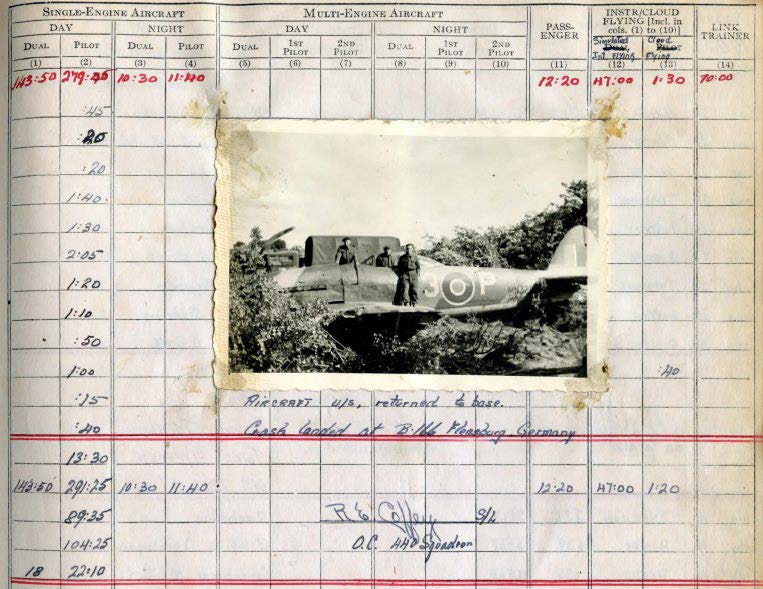 SINGLE-ENGINE AIRCRAFT MULTI-ENGINE AIRCRAFT PASS-ENGER INSTR/CLOUD FLYING [Incl. in cols. (1) to (10)] LINK TRAINER
DAY NIGHT DAY NIGHT
DUAL PILOT DUAL PILOT DUAL 1ST PILOT 2ND PILOT DUAL 1ST PILOT 2ND PILOT Simulated Inst. FLYING Cloud Flying
(1) (2) (3) (4) (5) (6) (7) (8) (9) (10) (11) (12) (13) (14)
143:50 10:30 11:40 12:20 47:00 1:30 70:00
:45
:20
:20
1:40
1:30
2:05
1:20
1:10
:50
3 P
1:00 :40
:15 AIRCRAFT u/s, returned to base.
:40 Crash landed at B.166 Flensburg, Germany
13:30
143:50 291:25 10:30 11:40 12:20 47:00 1:20
89:35 R.E. Coffey S/L
104:25 O.C. 440 Squadron
18 22:10